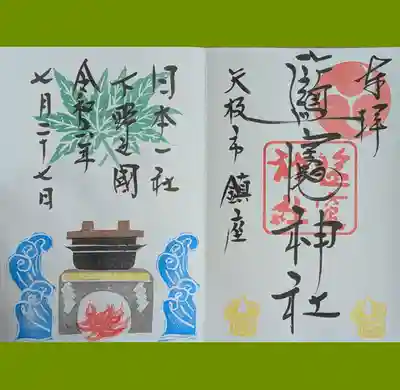 奉拝
鹽竈神社
矢板市鎮座
日本一社
下野之國
令和二年
七月二十七日